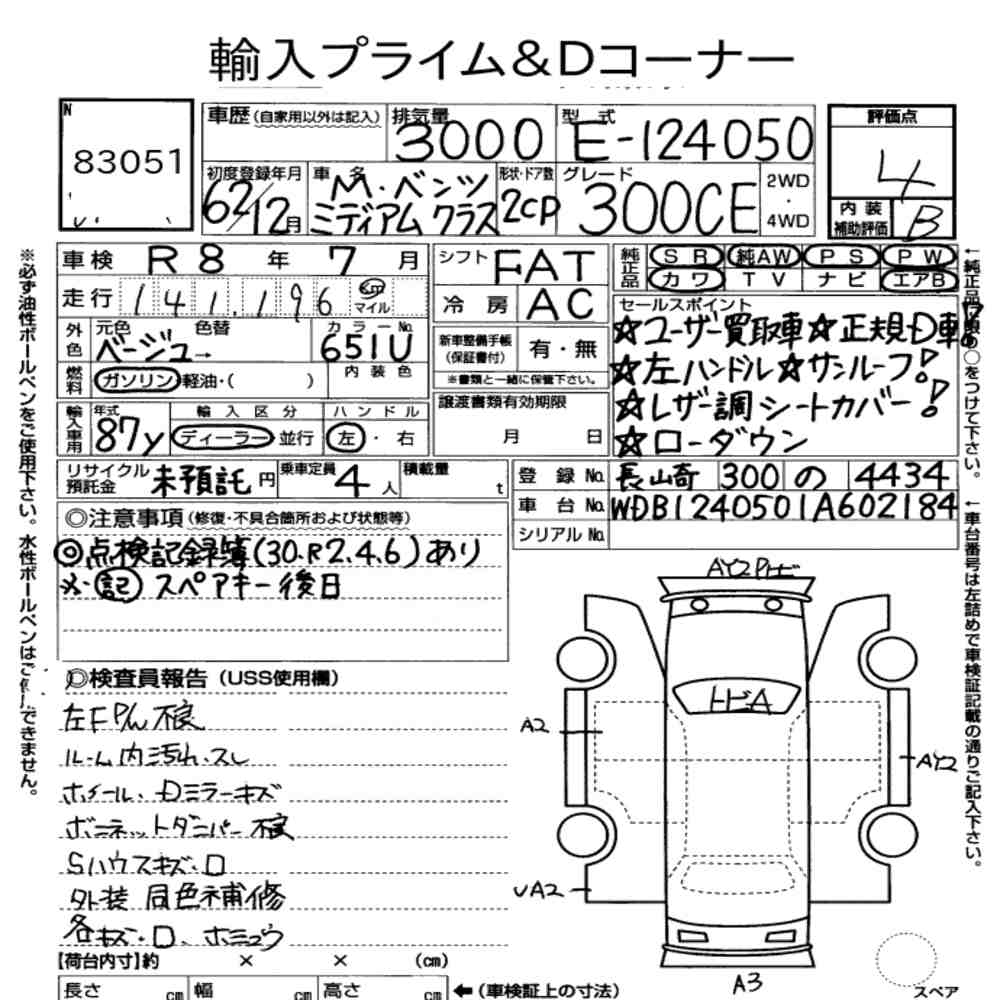 輸入プライム&Dコーナー
N
83051
車歴(自家用以外は記入)
排気量 3000
型式 E-124050
評価点 4
初度登録年月 62/12月
車名 M・ベンツ
ミディアムクラス
形状・ドア数 2CP
グレード 300CE
2WD
・
4WD
内装補助評価 B
車検 R8年 7月
シフト FAT
純正品 SR 純AW PS PW
カワ TV ナビ エアB
走行 141,196 Km マイル
冷房 AC
セールスポイント
☆ユーザー買取車☆正規D車
☆左ハンドル☆サンルーフ!
☆レザー調シートカバー!
☆ローダウン
外色 元色 ベージュ→ 色替
カラーNo. 651U
内装色
燃料 ガソリン・軽油・( )
新車整備手帳(保証書付) 有・無
※書類と一緒に保管下さい。
輸入車用 年式 87y
輸入区分 ディーラー・並行
ハンドル 左・右
譲渡書類有効期限
月 日
リサイクル預託金 未預託 円
乗車定員 4人
積載量 t
登録No. 長崎 300 の 4434
車台No. WDB1240501A602184
シリアルNo.
◎注意事項(修復・不具合箇所および状態等)
◎点検記録簿(30.R2.4.6)あり
※記 スペアキー後日
◎検査員報告(USS使用欄)
左FPW不良
ルーム内汚れ・スレ
ホイール、Dミラーキズ
ボンネットダンパー不良
Sハウスキズ・ロ
外装 同色補修
各キズ・ロ、ホミュウ
AY2Pトビ
トビA
A2
AY2
UA2
A3
スペア
【荷台内寸】約 × × (cm)
長さ cm 幅 cm 高さ cm ←(車検証上の寸法)
※必ず油性ボールペンをご使用下さい。水性ボールペンはご使用できません。
←車台番号は左詰めで車検証記載の通りご記入下さい。